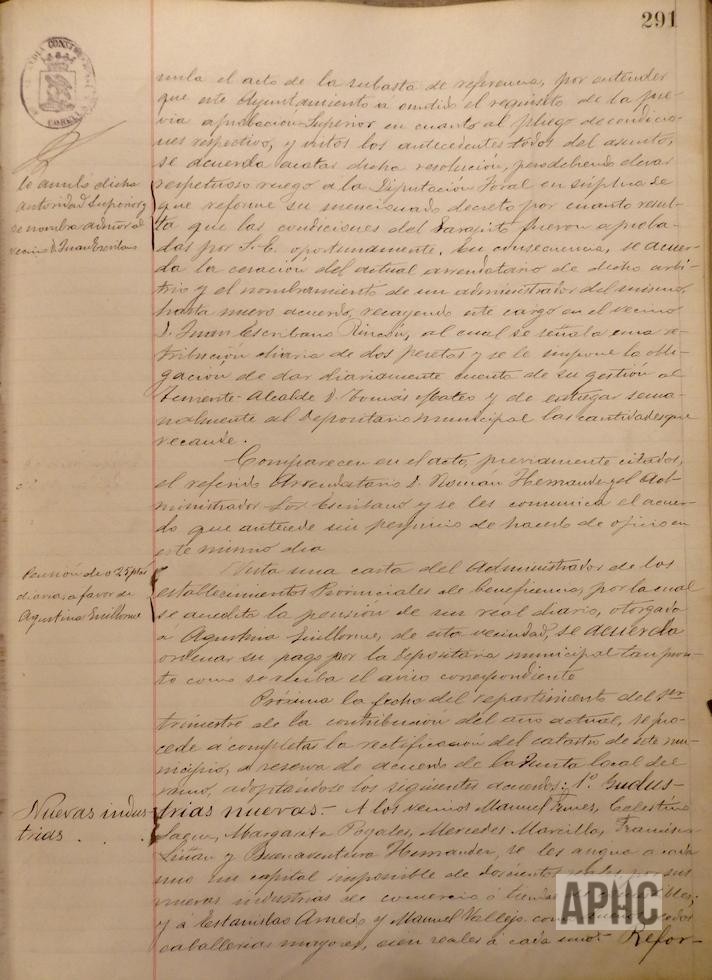 291
ALCALDIA CONSTITUCIONAL
CORELLA
nula el acto de la subasta de referencia, por entender
que este Ayuntamiento a emitido el requisito de la pre-
via aprobacion Superior en cuanto al pliego de condicio-
nes respectivo, y vistos los antecedentes todos del asunto,
se acuerda acatar dicha resolución, pero debiendo elevar
respetuoso ruego á la Diputación Foral en súplica de
que reforme su mencionado decreto por cuanto resul-
ta que las condiciones del Parapito fueron aproba-
das por S.E. oportunamente. En consecuencia, se acuer-
da la cesación del actual arrendatario de dicho arbi-
trio y el nombramiento de un administrador del mismo,
hasta nuevo acuerdo, recayendo este cargo en el vecino
D. Juan Escribano Rincón, al cual se señala una re-
tribución diaria de dos pesetas y se le impone la obli-
gación de dar diariamente cuenta de su gestión al
Teniente-Alcalde D. Tomás Mateo y de entregar sema-
nalmente al Depositario municipal las cantidades que
recaude.
lo anuló dicha
autoridad Superior y
se nombra admor al
vecino D. Juan Escribano
Comparecen en el acto, previamente citados,
el referido Arrendatario D. Roman Hernandez y el Ad-
ministrador Sor Escribano y se les comunica el acuer-
do que antecede sin perjuicio de hacerlo de oficio en
este mismo dia
Pensión de 0'25 ptas
diarias, a favor de
Agustina Guillorme
Vista una carta del Administrador de los
establecimientos Provinciales de Beneficencia, por la cual
se acredita la pensión de un real diario, otorgada
á Agustina Guillorme, de esta vecindad, se acuerda
ordenar su pago por la Depositaria municipal tan pron-
to como se reciba el aviso correspondiente
Próxima la fecha del repartimiento del 1er
trimestre de la contribución del año actual, se pro-
cede á completar la rectificación del catastro de este mu-
nicipio, á reserva de acuerdo de la Junta local del
ramo, adoptándose los siguientes acuerdos: 1º. Indus-
Nuevas indus-
trias
trias nuevas.- A los vecinos Manuel Celestino
Margarita Pogales, Mercedes Marcilla, Francisca
Liñan y Buenaventura Hernandez, se les asigna a cada
uno un capital imponible de doscientos reales por sus
nuevas industrias de comercio ó tiendas
y á Estanislao Arnedo y Manuel Vallejo
caballerias mayores, cien reales á cada uno.- Refor-
APHC